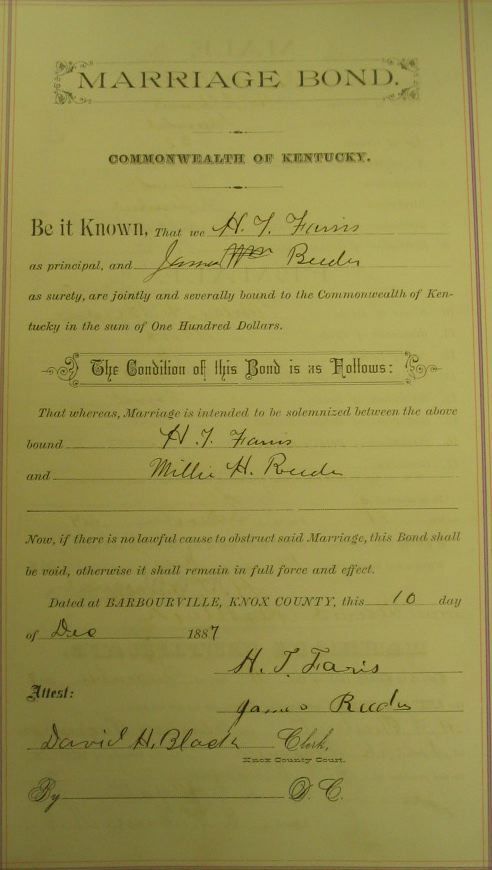 MARRIAGE BOND.
COMMONWEALTH OF KENTUCKY.
Be it Known, That we H. T. Faris
as principal, and James Reeder
as surety, are jointly and severally bound to the Commonwealth of Ken-
tucky in the sum of One Hundred Dollars.
The Condition of this Bond is as Follows:
That whereas, Marriage is intended to be solemnized between the above
bound H. T. Faris
and Millie H. Reeder
Now, if there is no lawful cause to obstruct said Marriage, this Bond shall
be void, otherwise it shall remain in full force and effect.
Dated at BARBOURVILLE, KNOX COUNTY, this 10 day
of Dec 1887
H. T. Faris
Attest:
James Reeder
David H. Black Clerk,
Knox County Court.
By D. C.